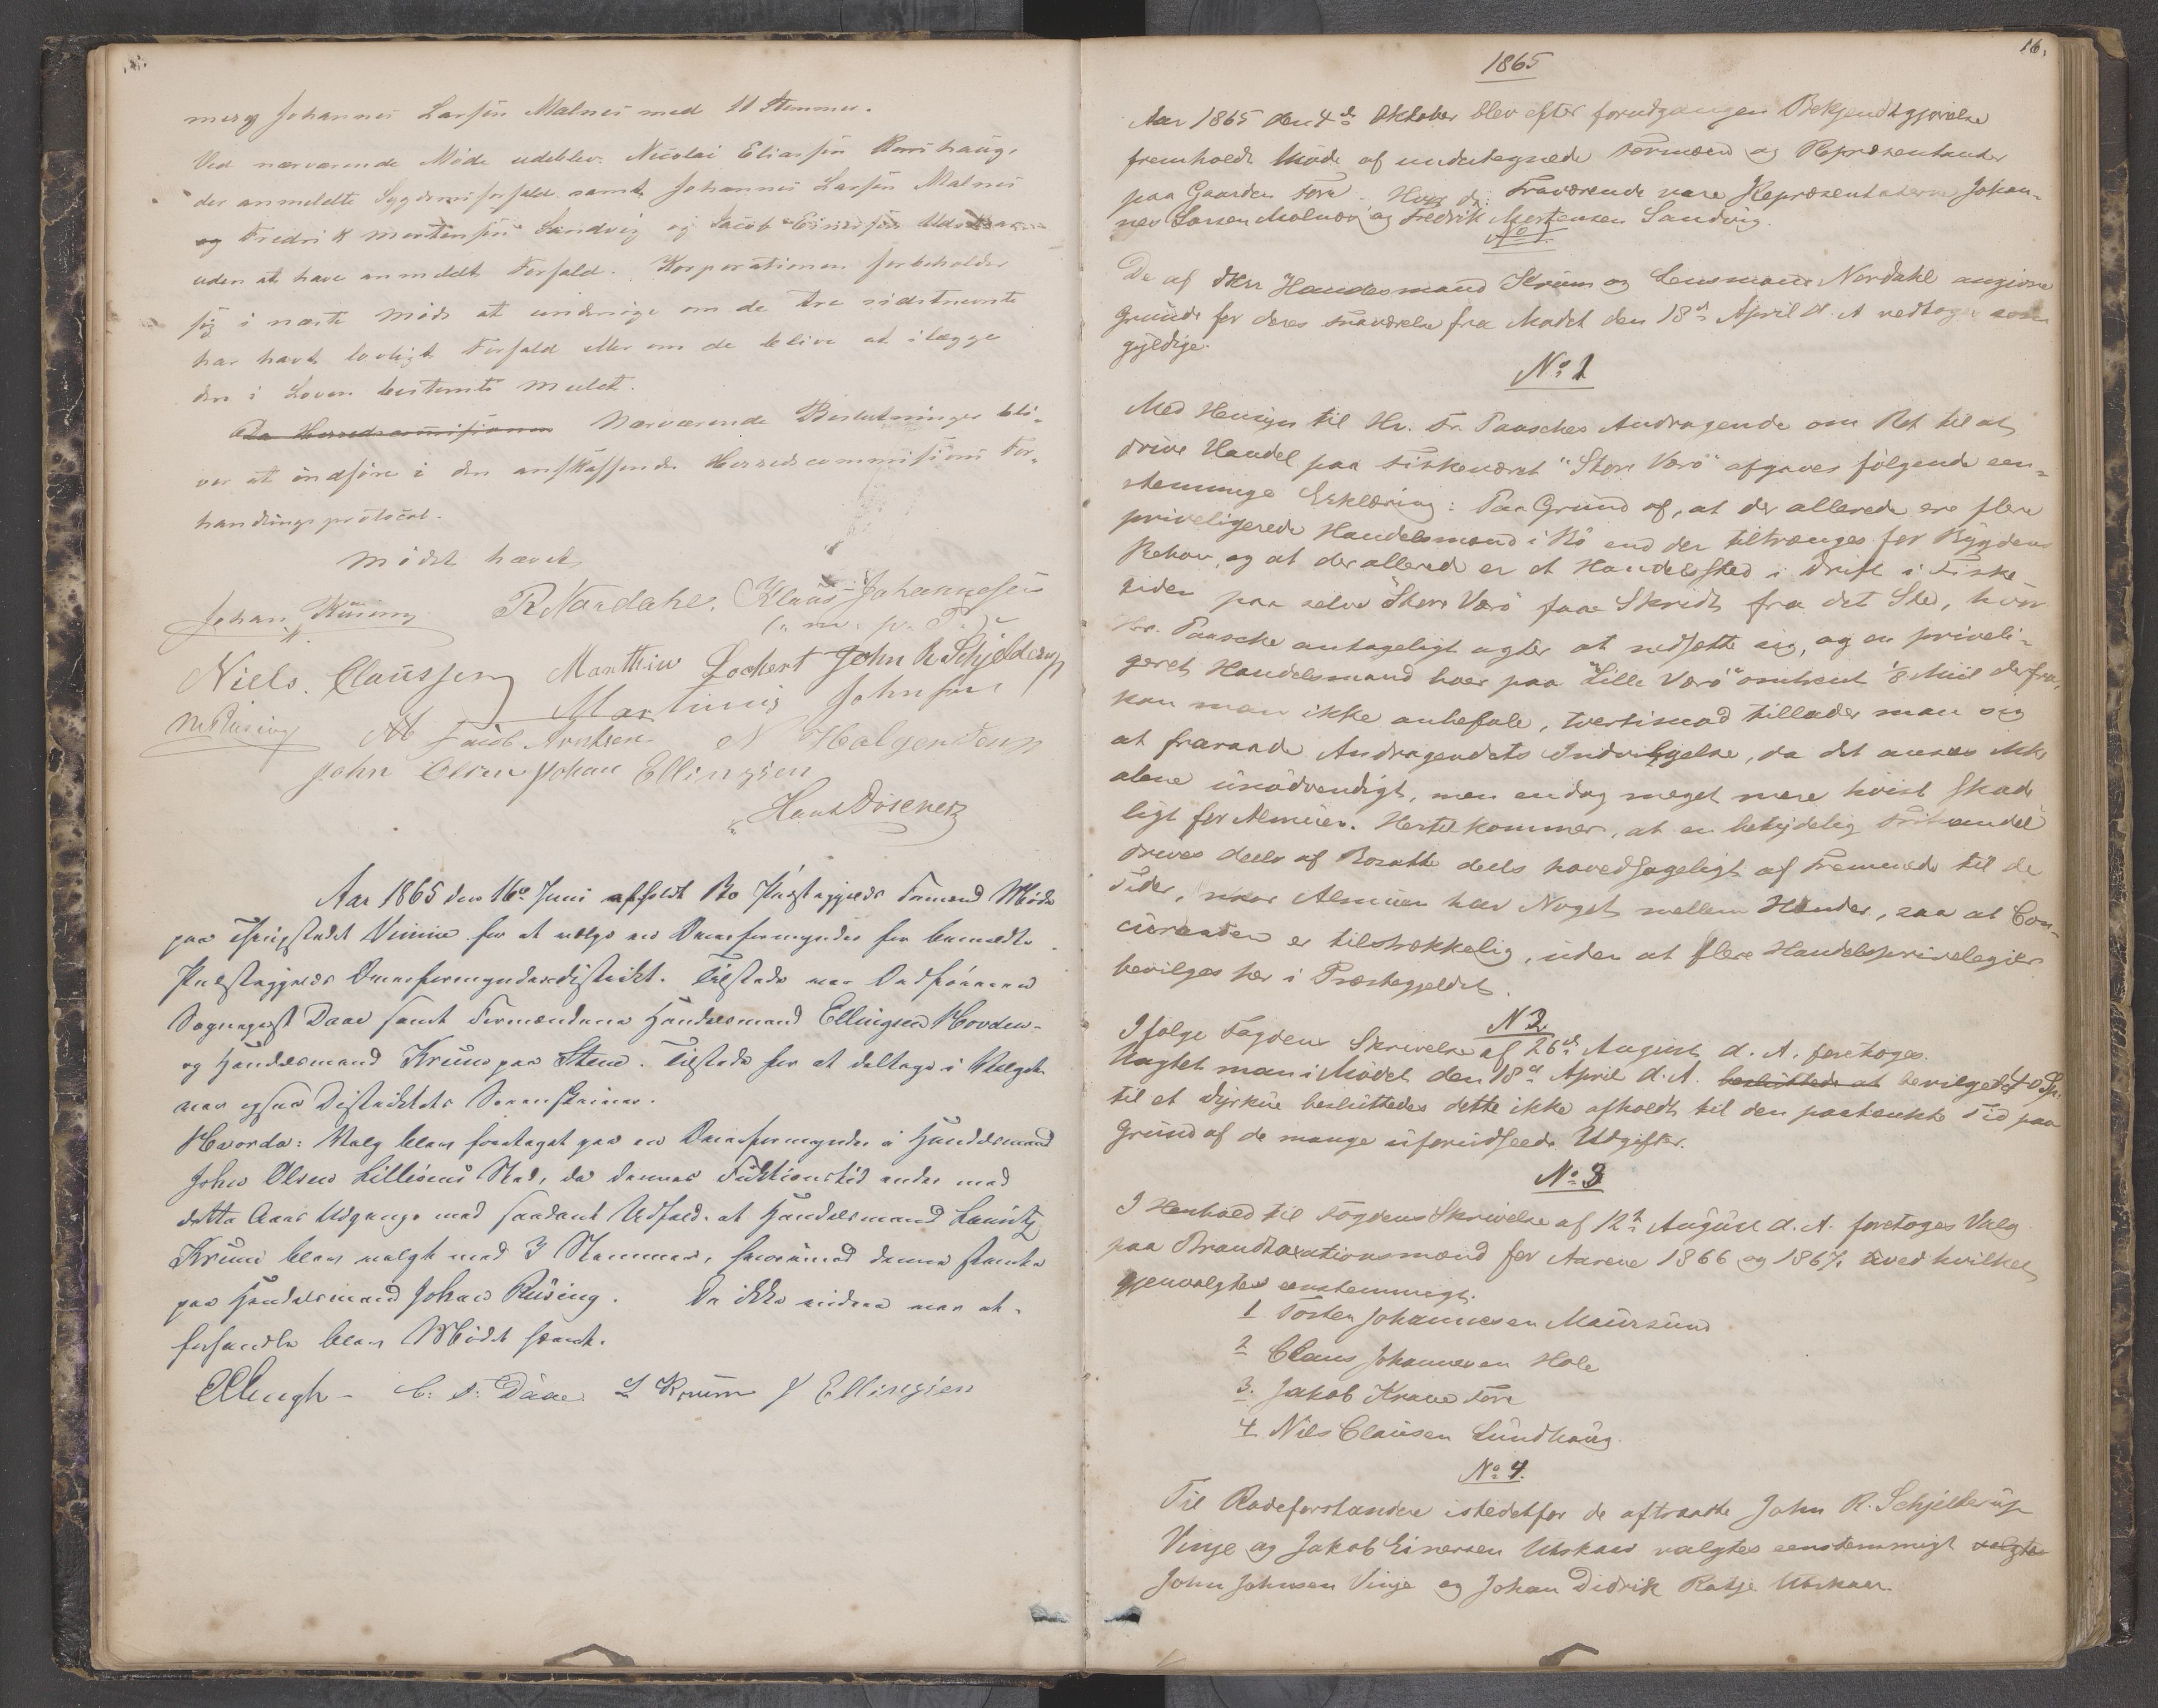 mesy Johannes Larsen Malnes med 11 Stemmer.
Ved nærværende Møde udeblev: Nicolai Eliassen Ramshaug,
der anmeldte Sygdomsforfald samt Johannes Larsen Malnes
og Fredrik Mortensen Sandvig og Jacob Einersen
uden at have anmeldt Forfald. Korporationen forbeholder
sig i næste Møde at undersøge om de tre sidstnevnte
har havt lovligt Forfald eller om de blive at ilægge
den i Loven bestemte Mulct.
Nærværende Beslutninger bli-
ver at indføre i den anskaffende Herredscommissions For-
handlingsprotocol.
Mødet hævet
Johan Rüsing R Nordahl. Klaus Johannessen
(m. p. P.)
Niels. Claussen Marthin Lockert John R Schjelderup
Martinus Johnsen
M Rüsing Jacob Arntsen N Halgensen
John Olsen Johan Ellingsen
Aar 1865 den 16de Juni afholdt Bø Præstegjelds Formænd Møde
paa Thingstedet Vinje for at vælge en Overformynder for bemeldte
Præstegjelds Overformynderdistrikt. Tilstede var Ordføreren
Sogneprest Daae samt Formændene Handelsmand Ellingsen Hovden
og Handelsmand Krum paa Steine. Tilstede for at deltage i Valget
var ogsaa Distriktets Sorenskriver.
Hvorda: Valg blev foretaget paa en Overformynder i Handelsmand
John Olsen Sted, da dennes Funktionstid ender med
dette Aars Udgang, med saadant Udfald at Handelsmand Lauritz
Krum blev valgt med 3 Stemmer, hvorimod denne stemte
paa Handelsmand Johan Rüsing. Da ikke videre var at
forhandle blev Mødet hævet.
C: F: Daae. L Krum J Ellingsen
16.
1865
Aar 1865 den 4de Oktober blev efter forudgangen Bekjendtgjørelse
fremholdt Møde af undertegnede Formænd og Repræsentanter
paa Gaarden Føre. Hvor da: Fraværende vare Repræsentanterne Johan-
nes Larsen Malnes og Fredrik Mortensen Sandvig.
De af Hrr Handelsmand Krum og Lensmand Nordahl angivne
Grunde for deres Fraværelse fra Mødet den 18de April d. A vedtoges som
gyldige.
No. 1
Med Hensyn til Hr. Fr. Paasches Andragende om Ret til at
drive Handel paa Fiskeværet "Store Værø" afgaves følgende een-
stemmige Erklæring: Paa Grund af, at der allerede ere flere
priveligerede Handelsmænd i Bø end der tiltrænges for Bygdens
Behov, og at der allerede er et Handelssted i Drift i Fiske-
tiden paa selve "Store Værø" faa Skridt fra det Sted, hvor
Hr. Paasche antageligt agter at nedsætte sig, og en priveli-
geret Handelsmand boer paa "Lille Værø" omtrent 1/8 Miil derfra,
kan man ikke anbefale, tvertimod tillader man sig
at fraraade Andragendets Indvilgelse, da det ansees ikke
alene unødvendigt, men endog meget mere høist skade
ligt for Almuen. Hertil kommer, at en betydelig Frihandel
drives deels af Bosatte deels hovedsageligt af Fremmede til de
Tider, naar Almuen har Noget mellem Hænder, saa at Con-
curensen er tilstrækkelig, uden at flere Handelsprivelegier
bevilges her i Præstegjeldet.
N 2
Ifølge Fogdens Skrivelse af 26de August d. A. foretoges.
Uagtet man i Mødet den 18de April d. A. besluttede at bevilgedes 40 Sp.
til et Dyrskue besluttedes dette ikke afholdt til den paatænkte Tid paa
Grund af de mange uforudseede Udgifter.
No. 3
I Henhold til Fogdens Skrivelse af 12te August d. A. foretoges Valg
paa Brandtaxationsmænd for Aarene 1866 og 1867, ved hvilket
gjenvalgtes eenstemmigt.
1 Tosten Johannesen Maursund
2 Claus Johannesen Hole
3. Jakob Krane Føre
4 Nils Clausen Lundhaug.
No. 4.
Til Rodeforstandere istedetfor de aftraadte John R. Schjelderup
Vinje og Jakob Einersen Utskar valgtes eenstemmigt valgte
John Johnsen Vinje og Johan Didrik Ratje Utskar.